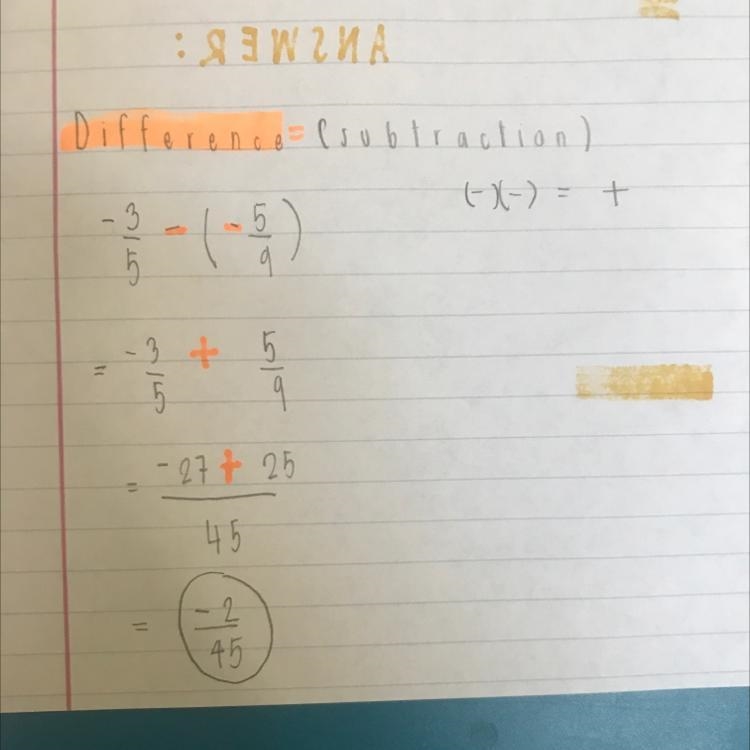 ANSWER:
Difference = (subtraction)
(-)(-) = +
-3/5 - (-5/9)
= -3/5 + 5/9
= -27 + 25 / 45
= -2/45